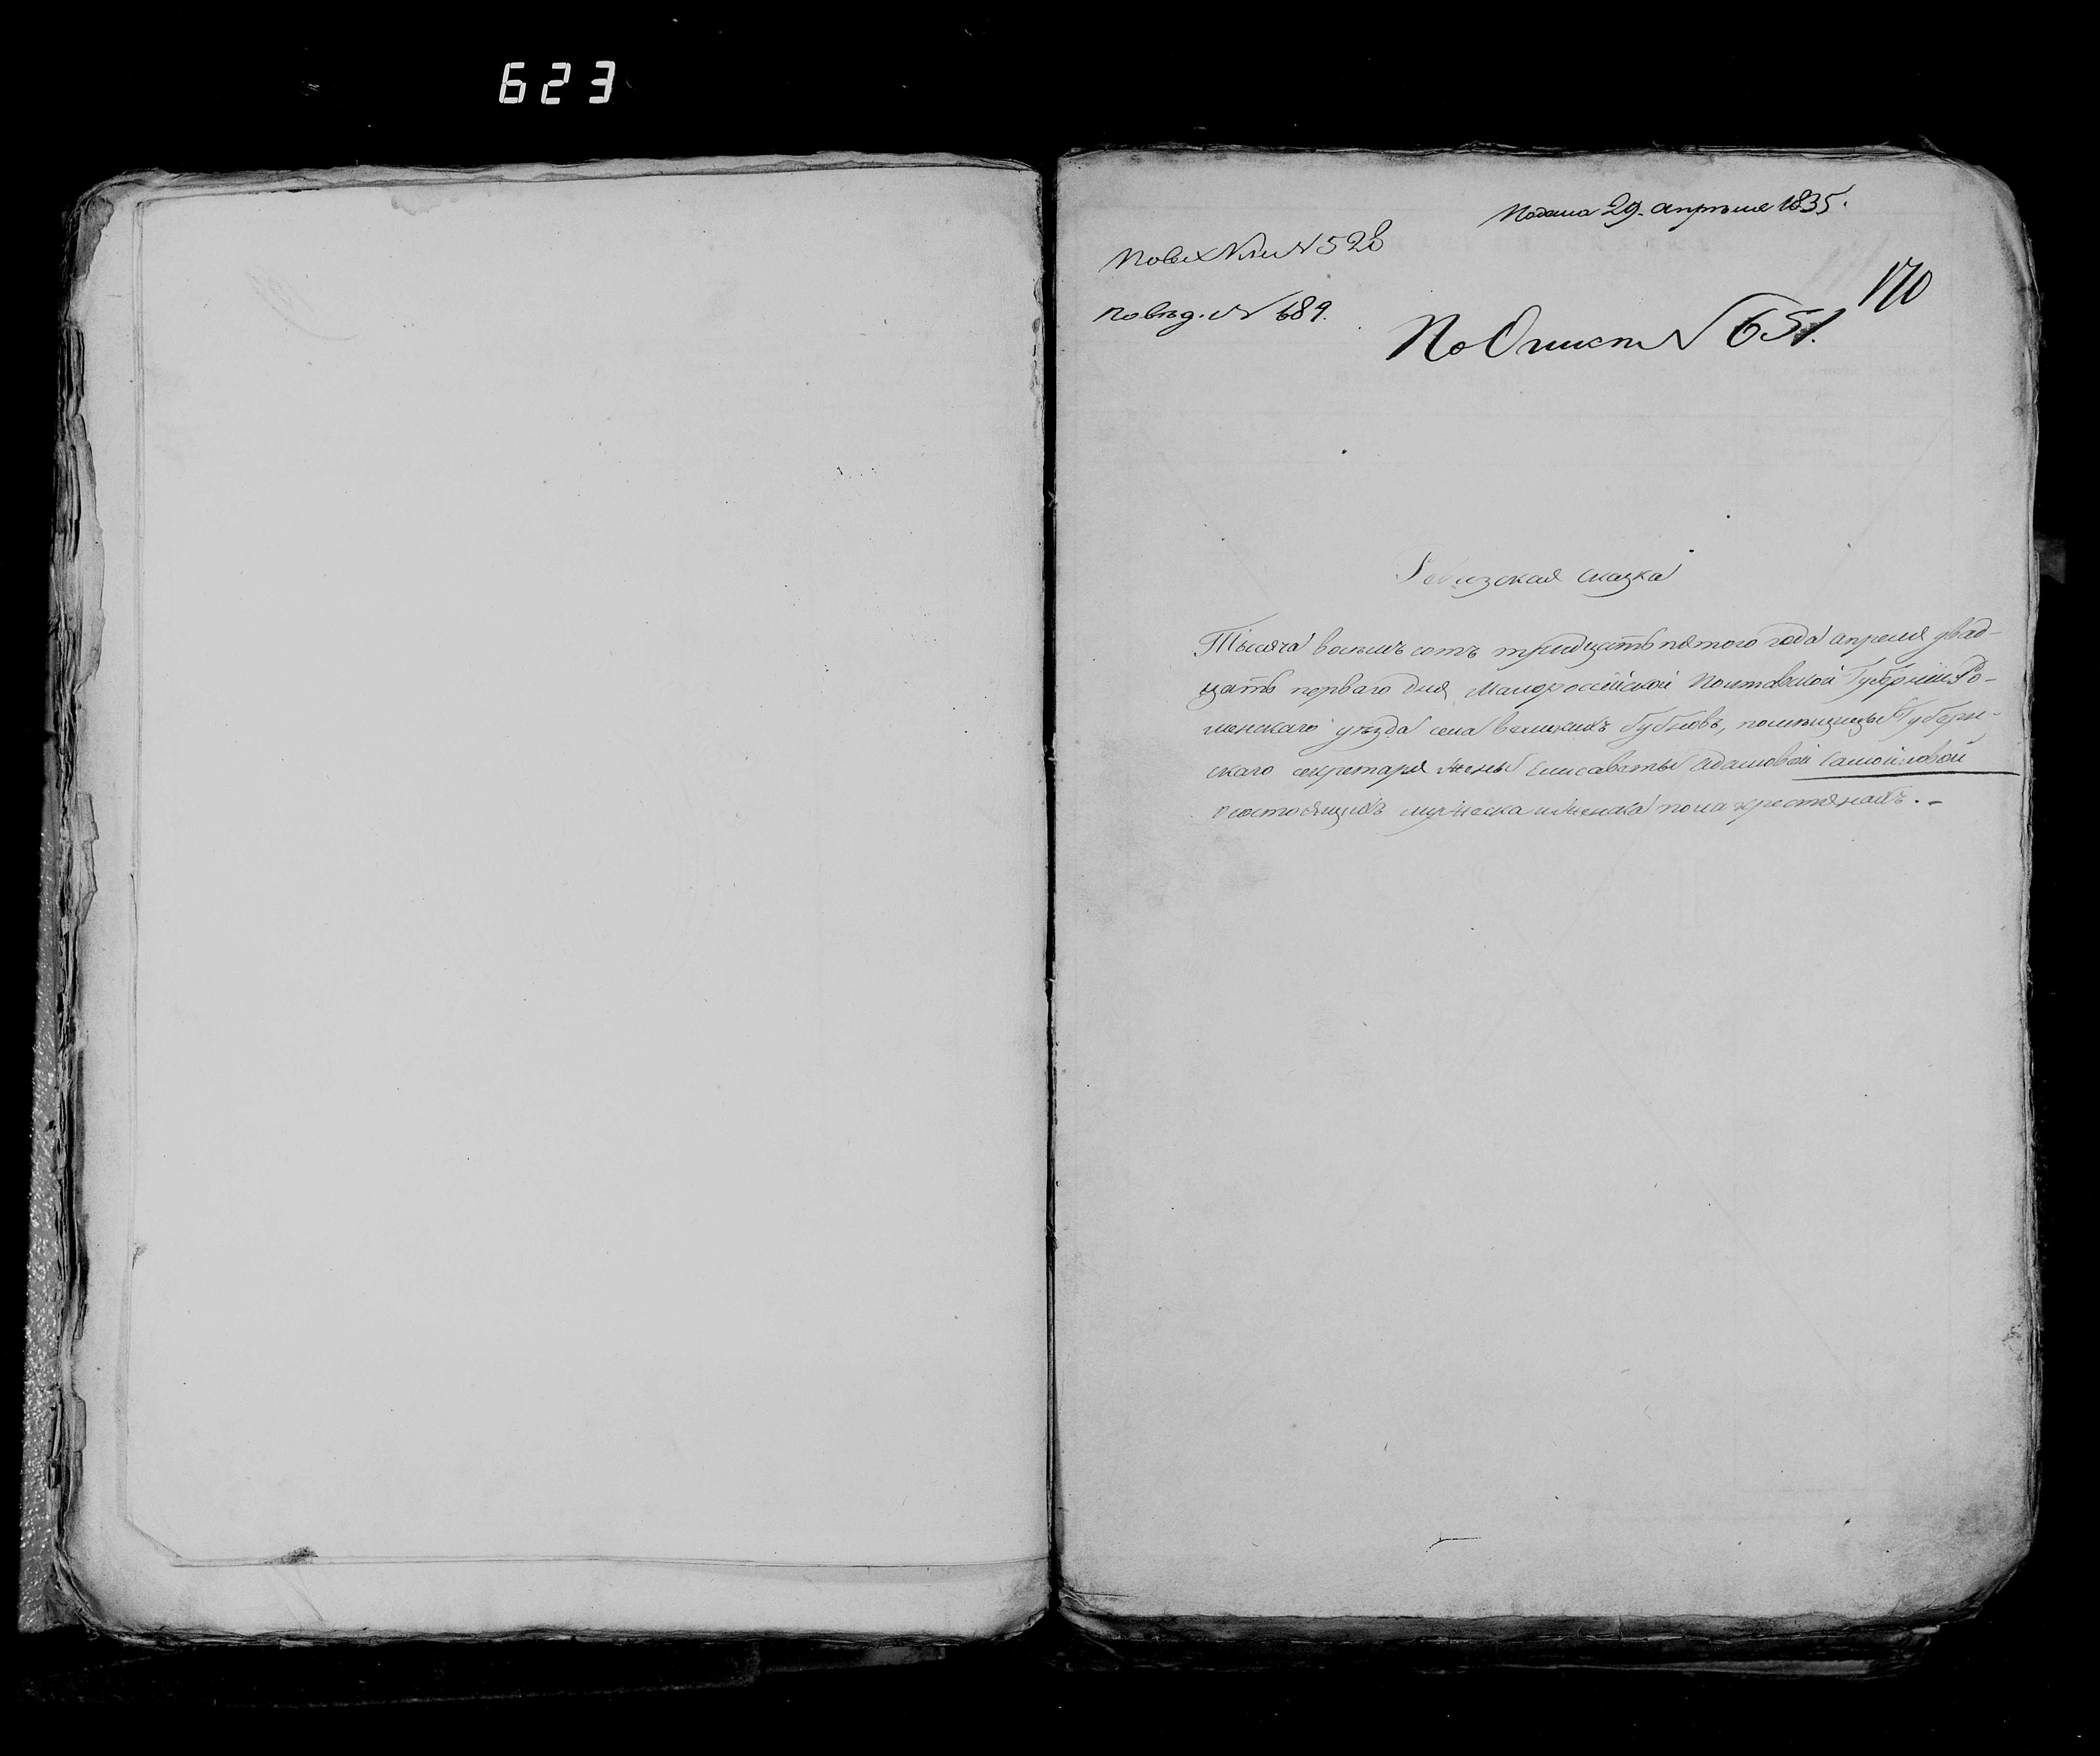 623
Подана 29. апреля 1835.
По вх Кни № 528
170
по вѣд. № 689.
По Описи № 651.
Ревизская сказка
Тысяча восемь сотъ тридцать пятого года апреля двад-
цать первого дня Малороссійской Полтавской Губерніи Ро-
менскаго уѣзда села великихъ Бубновъ, помѣщицы Губерн-
скаго секретаря жены Елисаветы Адамовой Самойловой
о состоящихъ мужеска и женска пола крестянахъ.-